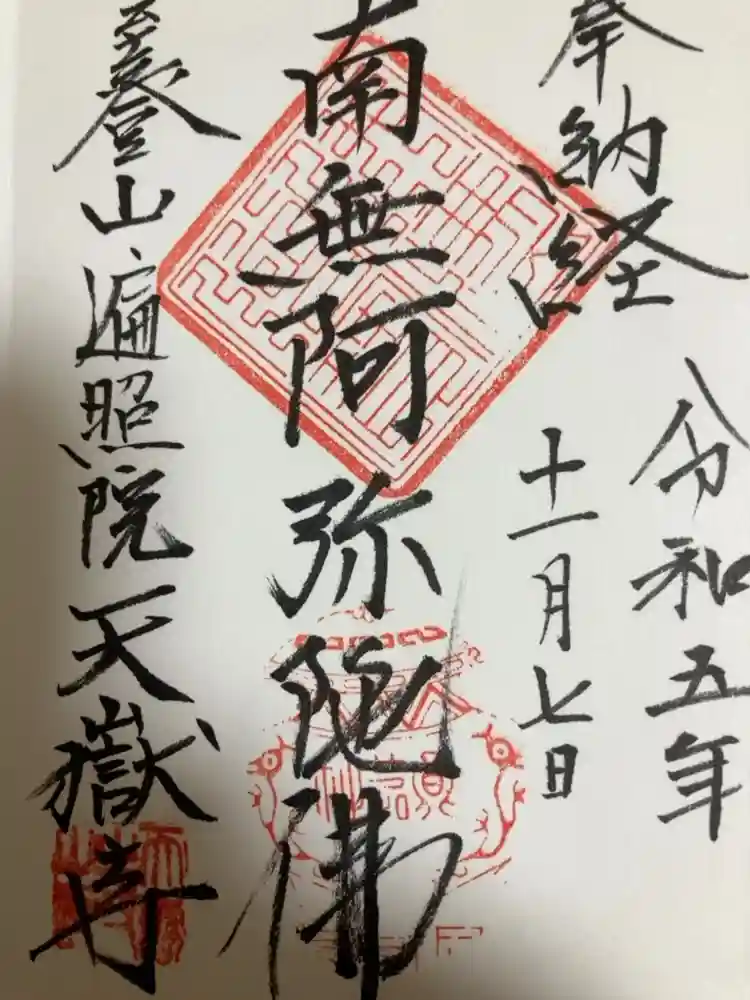 奉納経
令和五年
十一月七日
南無阿弥陀佛
至登山遍照院天嶽寺